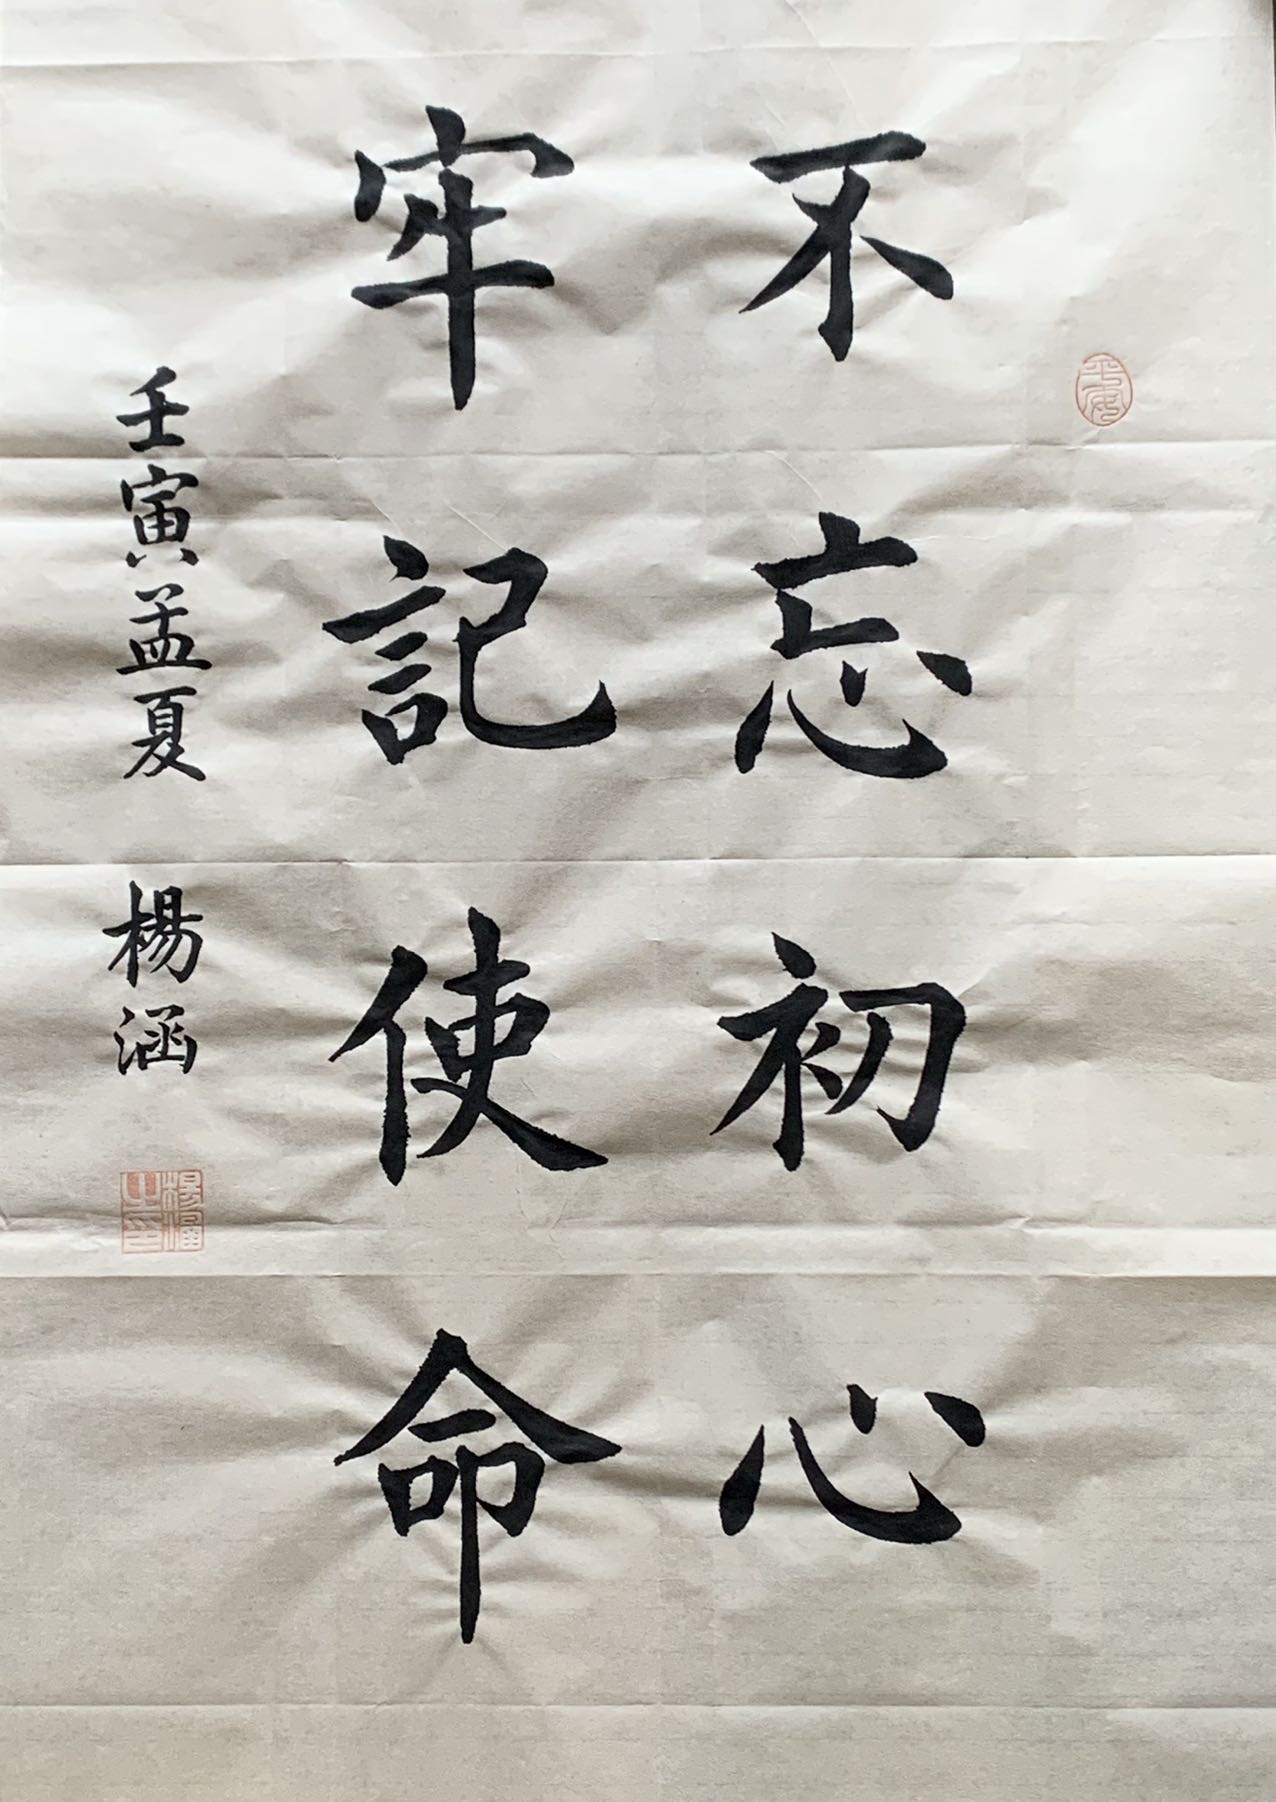 不忘初心
牢記使命
壬寅孟夏 楊涵
平安
楊涵之印